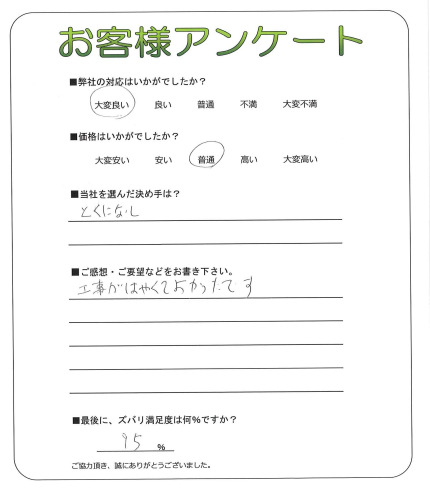 お客様アンケート
■弊社の対応はいかがでしたか？
大変良い 良い 普通 不満 大変不満
■価格はいかがでしたか？
大変安い 安い 普通 高い 大変高い
■当社を選んだ決め手は？
とくになし
■ご感想・ご要望などをお書き下さい。
工事がはやくてよかったです
■最後に、ズバリ満足度は何％ですか？
95 %
ご協力頂き、誠にありがとうございました。